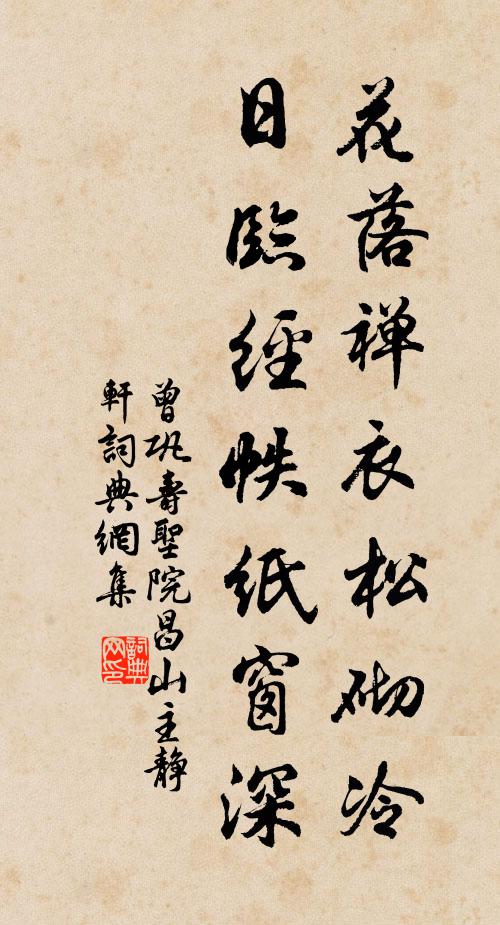 花落禅衣松砌冷
日臨經帙纸窗深
曾巩壽聖院昌山主静
軒詞典網集
詞典网印